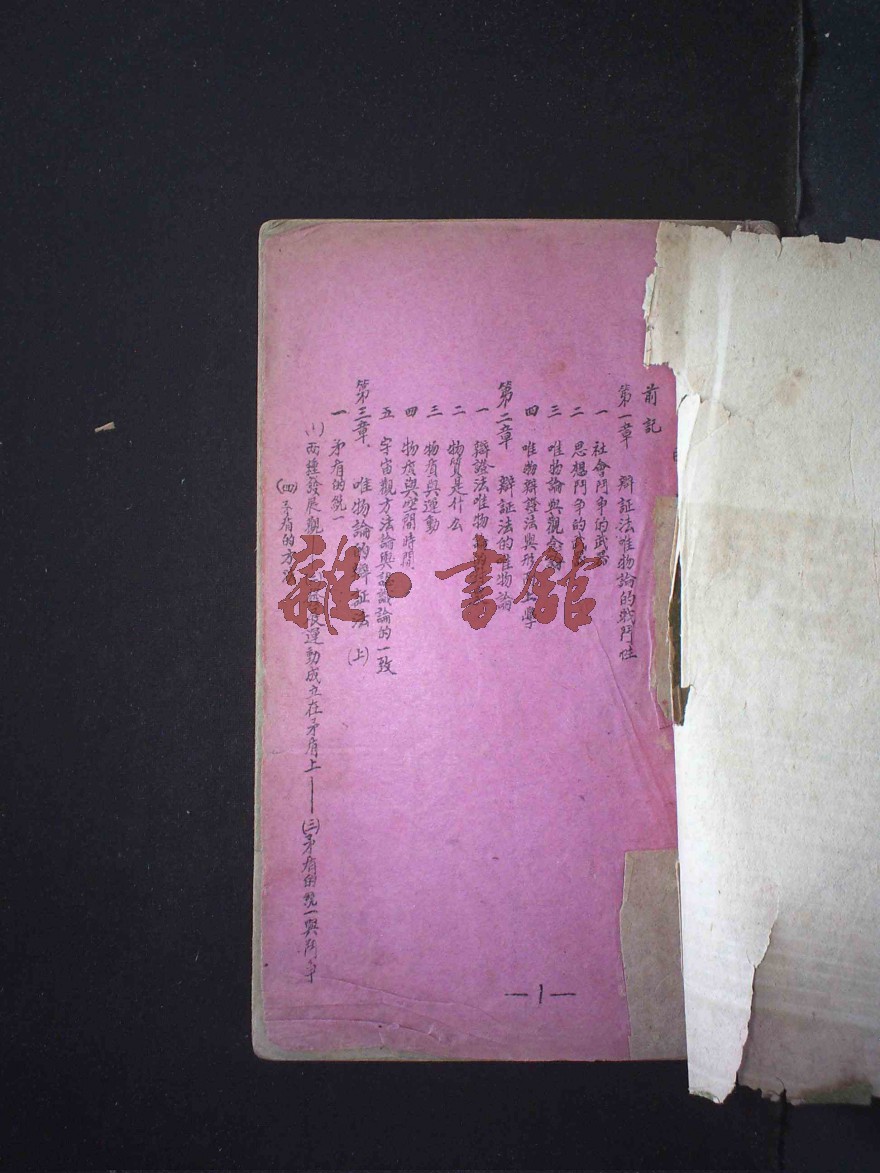 前記
第一章 辯証法唯物論的戰鬥性
一 社會鬥爭的武器
二 思想鬥争的
三 唯物論與觀念
四 唯物辯證法與形 學
第二章 辯証法的唯物論
一 辯證法唯物
二 物質是什么
三 物質與運動
四 物質與空間時間
五 宇宙觀方法論與認識論的一致
第三章 唯物論的辯証法(上)
一 矛盾的統一
(1)兩種發展觀 運動成立在矛盾上——(三)矛盾的統一與鬥爭
(四)矛盾的方
—1—
雜·書舘